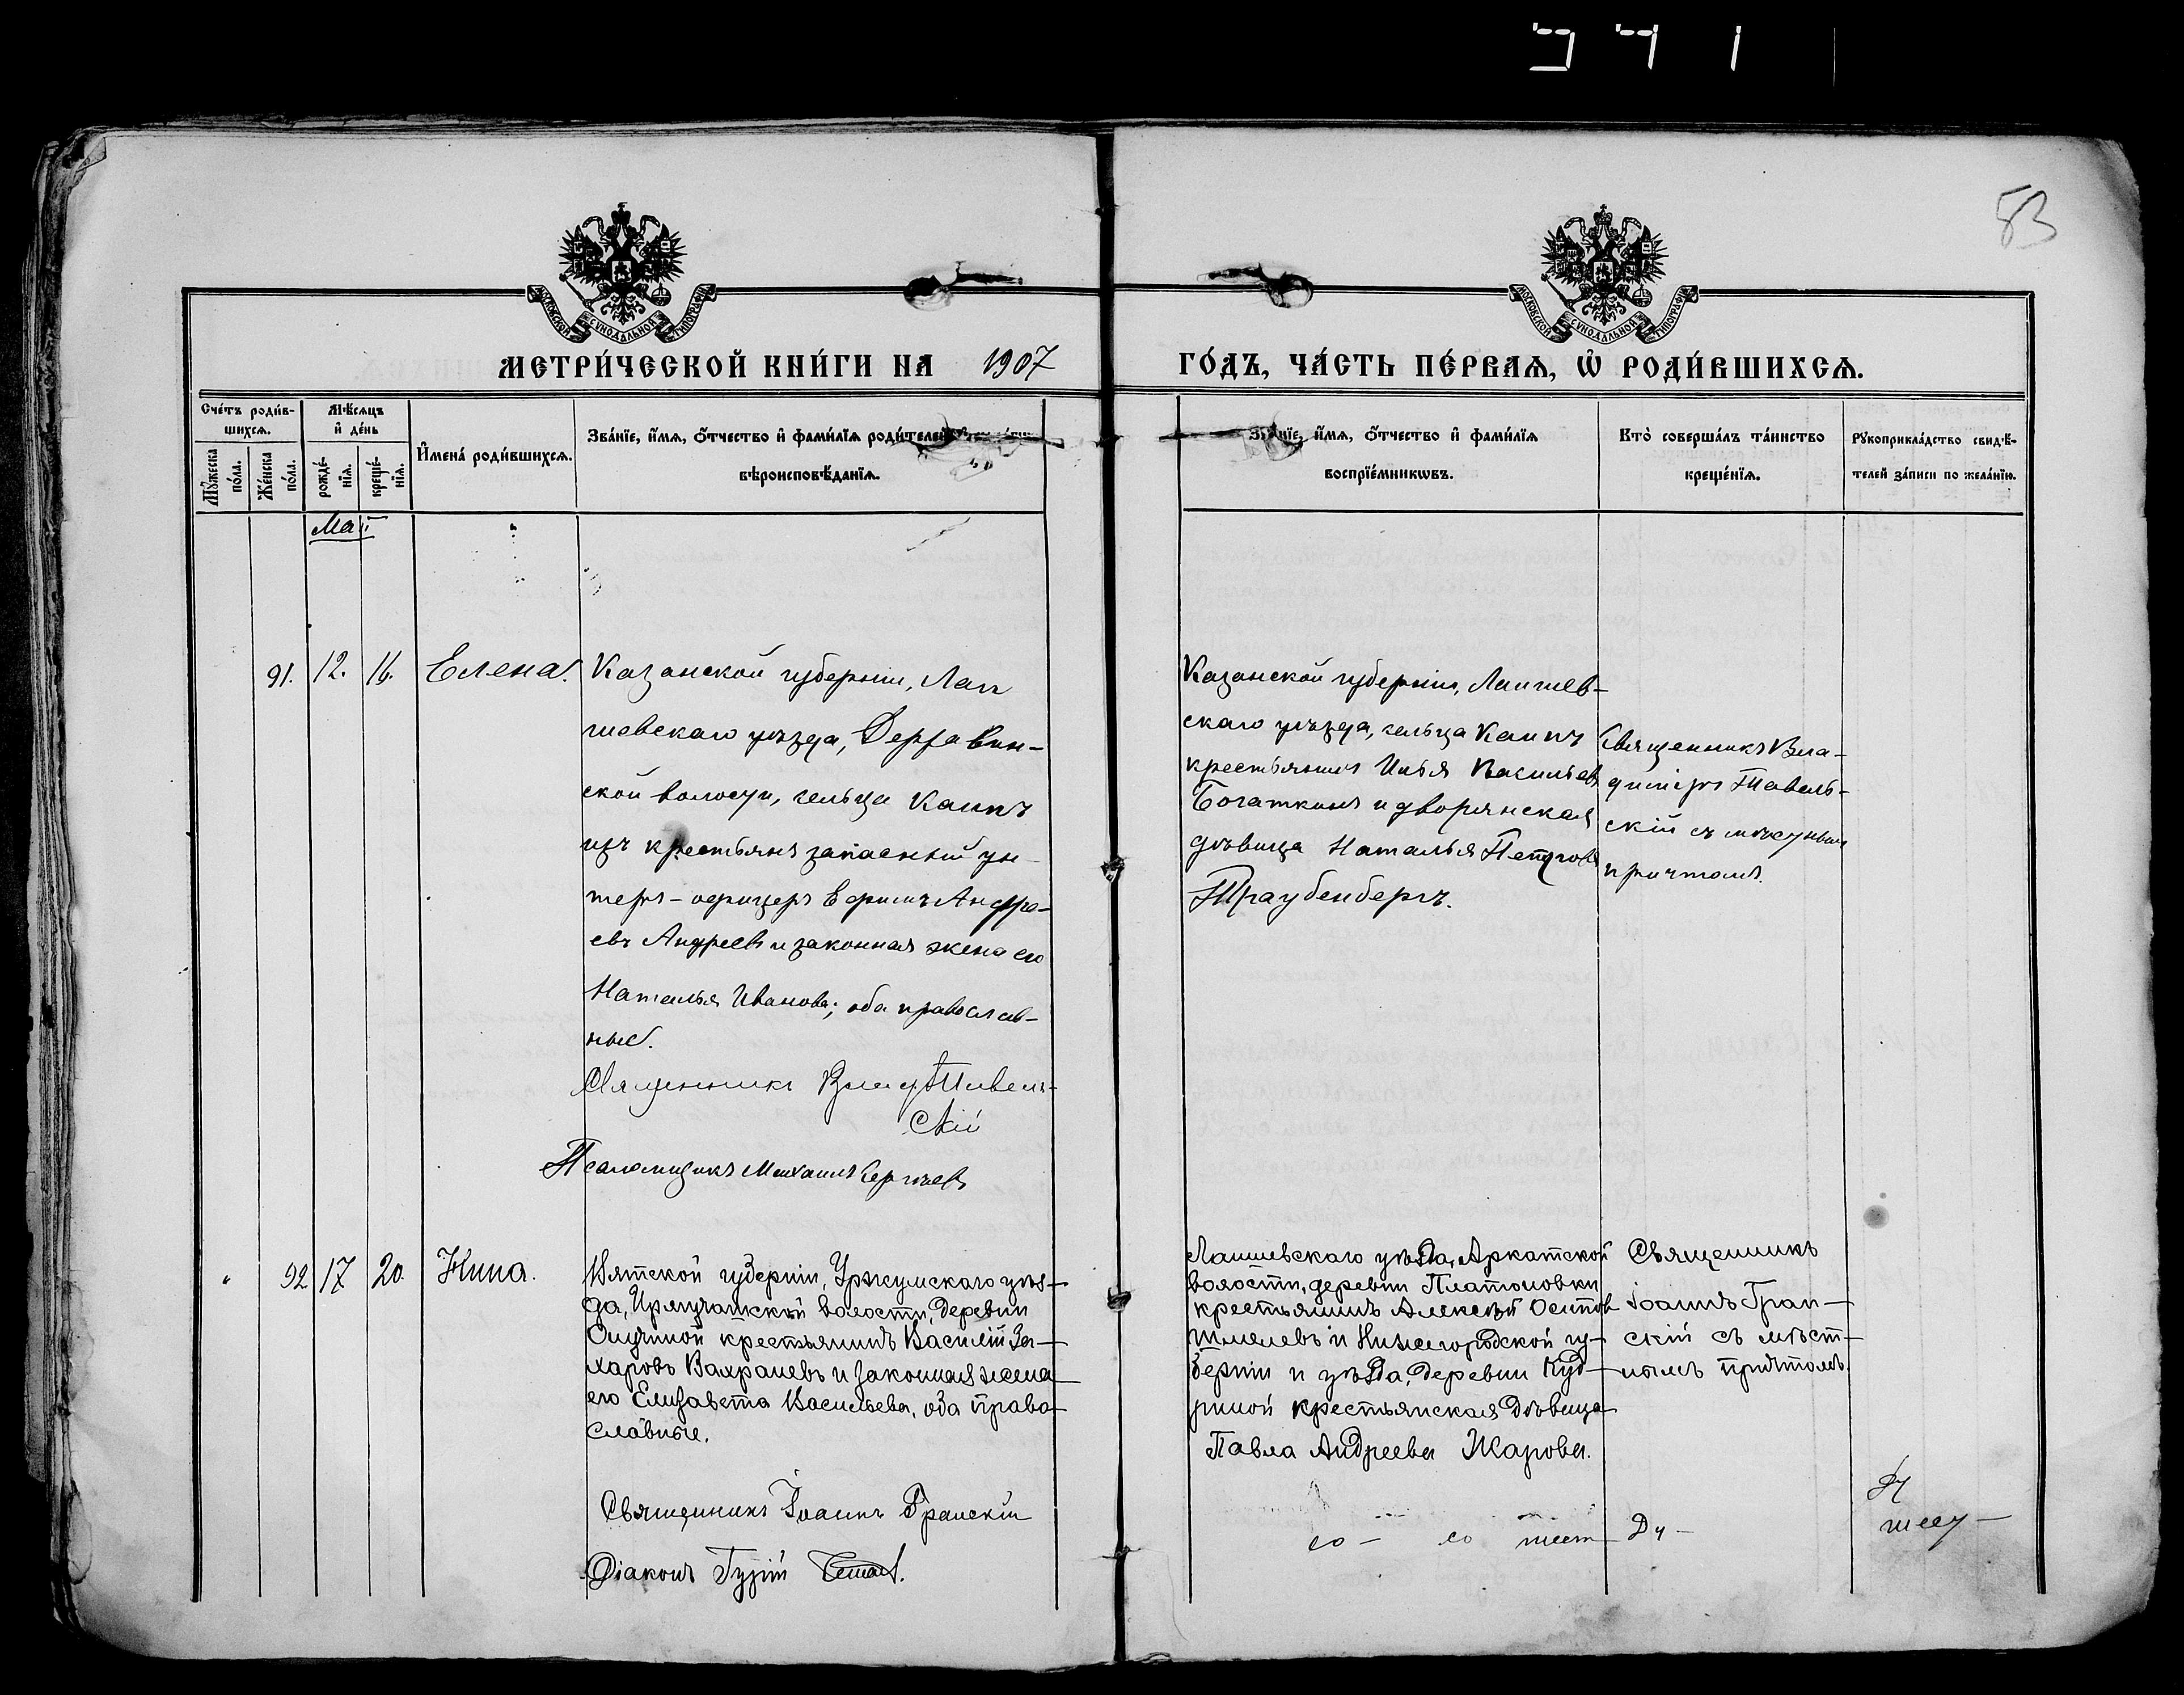 83
МОСКОВСКОЙ СУНОДАЛЬНОЙ ТИПОГРАФІИ
МОСКОВСКОЙ СУНОДАЛЬНОЙ ТИПОГРАФІИ
МЕТРИ́ЧЕСКОЙ КНИ́ГИ НА 1907 ГО́ДЪ, ЧА́СТЬ ПЕ́РВАѦ, Ѡ҆ РОДИ́ВШИХСѦ.
Сче́тъ роди́в-
шихсѧ.
Мꙋ́жеска по́ла.
Же́нска по́ла.
Мѣ́сѧцъ
и҆ де́нь
рожде́-нїѧ.
креще́-нїѧ.
И҆мена̀ роди́вшихсѧ.
Зва́нїе, и҆́мѧ, ѻ҆́тчество и҆ фами́лїѧ роди́телей
вѣроисповѣ́данїѧ.
Зва́нїе, и҆́мѧ, ѻ҆́тчество и҆ фами́лїѧ
воспрїе́мникѡвъ.
Кто̀ соверша́лъ та́инство
креще́нїѧ.
Рꙋкоприкла́дство свидѣ́-
телей за́писи по жела́нїю.
Май
91. 12. 16. Елена.
Казанской губерніи, Лаи
шевскаго уѣзда, Державин-
ской волости, сельца Каипъ
изъ крестьянъ запасный ун-
теръ-офицеръ Ефимъ Андре-
евъ Андреевъ и законная жена его
Наталья Иванова; оба православ-
ные.
Священникъ Влад. Тавель-
скій
Псаломщикъ Михаилъ Сергѣевъ
Казанской губерніи, Лаишев-
скаго уѣзда, сельца Каипъ
крестьянинъ Илья Васильевъ
Богаткинъ и дворянская
дѣвица Наталья Петрова
Траубенбергъ.
Священникъ Вла-
димiръ Тавель-
скій съ мѣстнымъ
причтомъ.
" 92 17 20. Нина.
Вятской губерніи, Уржумскаго уѣз-
да, волости, деревни
крестьянинъ Василій За-
харовъ Вахрамевъ и законная жена
его Елизавета Васильева, оба право-
славные.
Священникъ Іоаннъ Гранскій
Діаконъ Гурій
Лаишевскаго уѣзда, Аркатской
волости, деревни Платоновки
крестьянинъ Алексѣй Осипов
Шмелевъ и Нижегородской гу-
берніи и уѣзда, деревни Куд-
риной крестьянская дѣвица
Павла Андреева Жарова.
Священникъ
Іоаннъ Гран-
скій съ мѣст-
нымъ причтомъ.